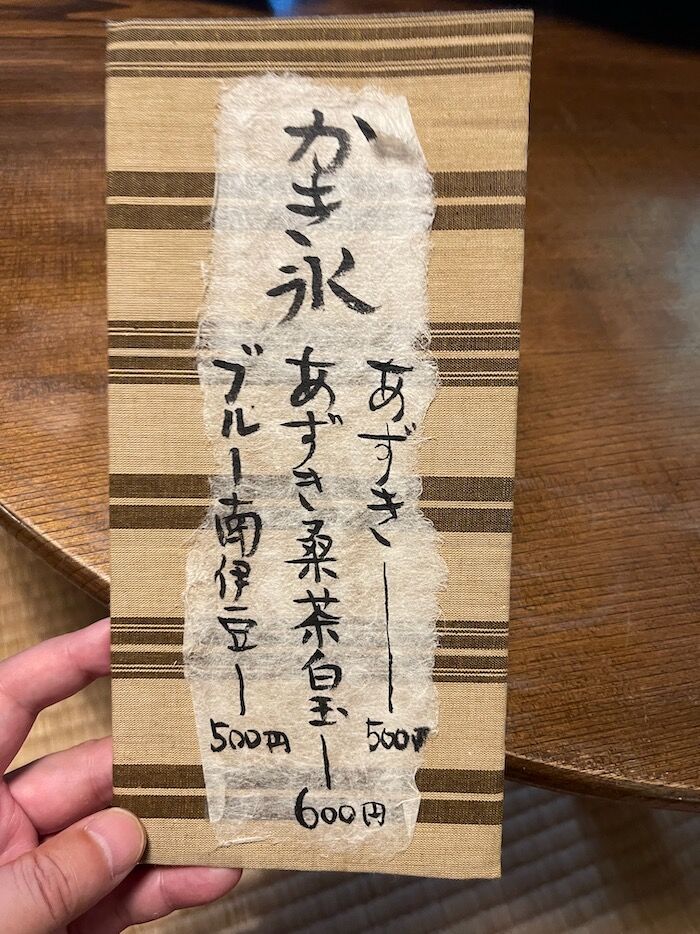 かき氷
あずき — 500円
あずき桑茶白玉 — 600円
ブルー南伊豆 — 500円